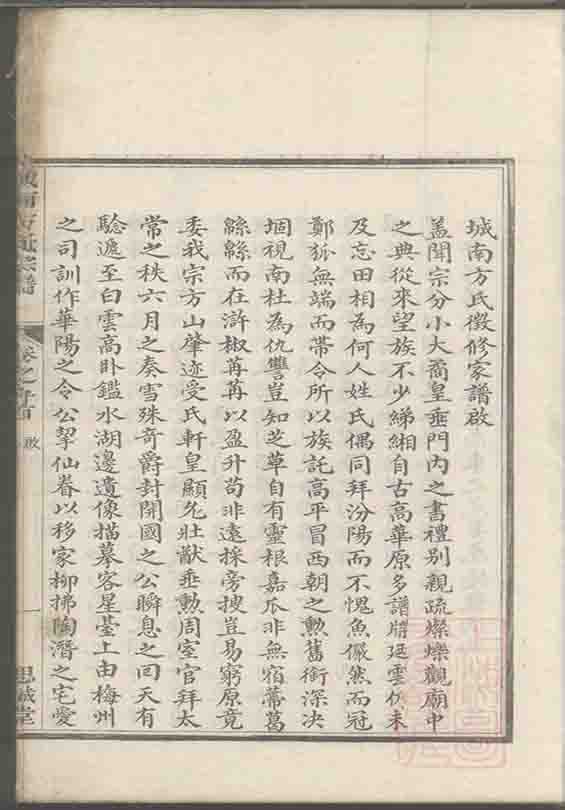 城南方氏徵修家譜啟
蓋聞宗分小大喬皇垂門內之書禮別親疏燦爍觀廟中
之典從來望族不少綈緗自古高華原多譜牒廷雲仍未
及忘田相為何人姓氏偶同拜汾陽而不愧魚儼然而冠
鄭狐無端而帶令所以族託高平冒西朝之勲舊銜深決
堌視南杜為仇讐豈知芝草自有靈根嘉瓜非無宿蒂葛
緜緜而在滸椒苒苒以盈升苟非遠採旁搜豈易窮原竟
委我宗方山肇迹受氏軒皇顯允壯猷垂勲周室官拜太
常之秩六月之奏雪殊奇爵封開國之公瞬息之回天有
驗遞至白雲高卧鑑水湖邊遺像描摹客星臺上由梅州
之司訓作華陽之令公挈仙眷以移家柳拂陶潛之宅愛
城南方氏宗譜
卷之首
啟
一
思誠堂